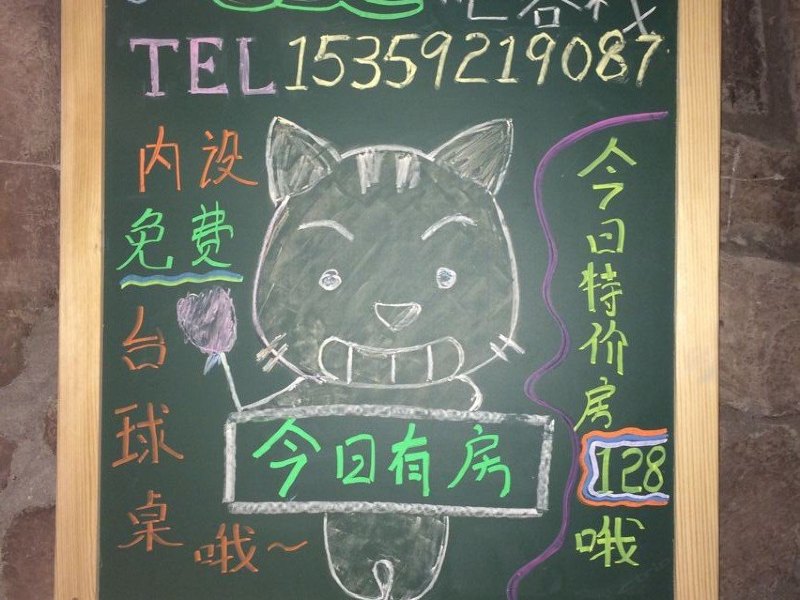 吧客栈
TEL 15359219087
内设
免费
台球桌
哦~
今日有房
今日特价房
128
哦